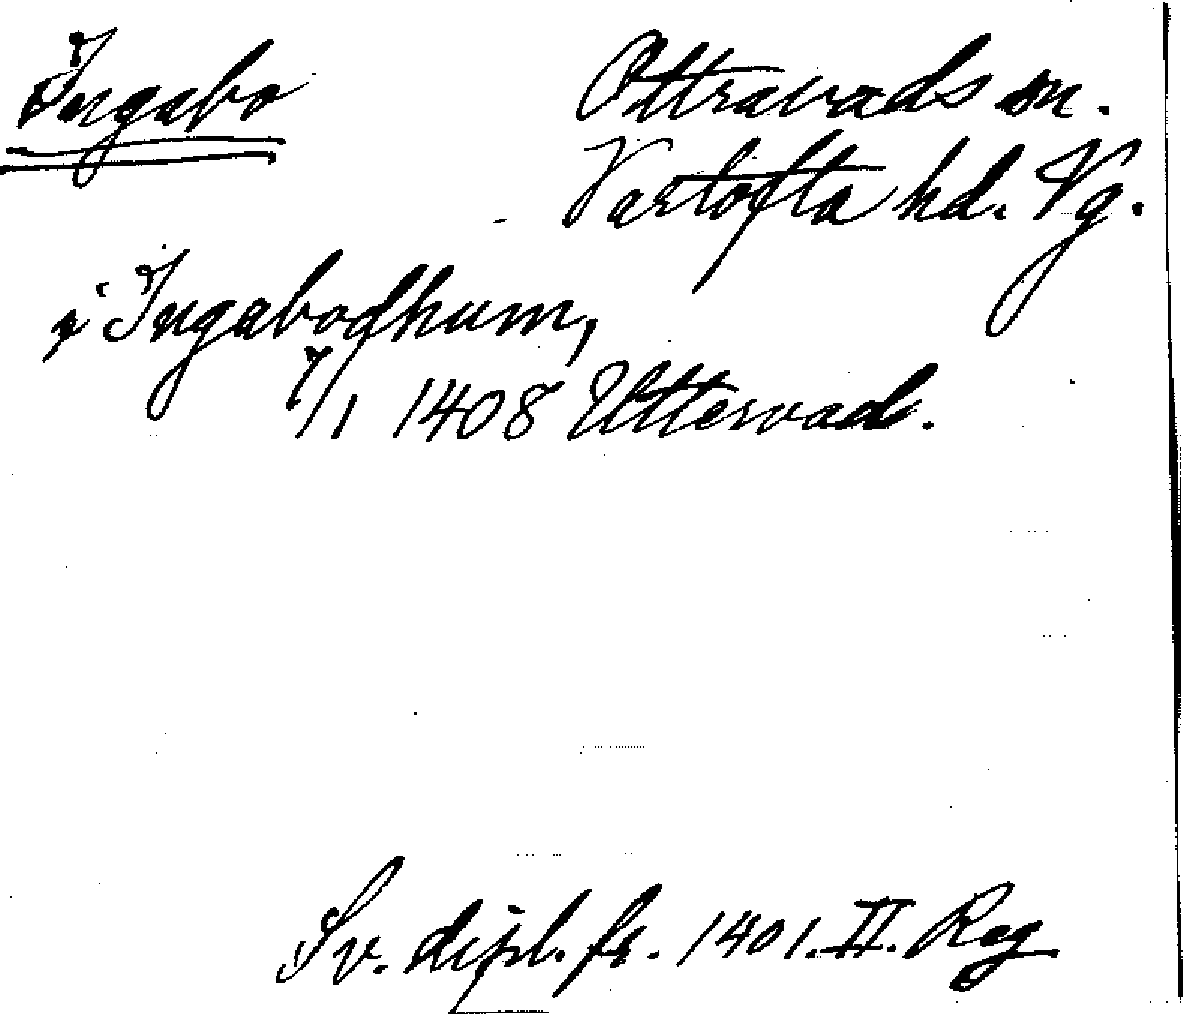 Ingabo
Ottravads sn.
Vartofta hd. Vg.
i Ingabodhum,
7/1 1408 Uttervad.
Sv. dipl. fr. 1401. II. Reg